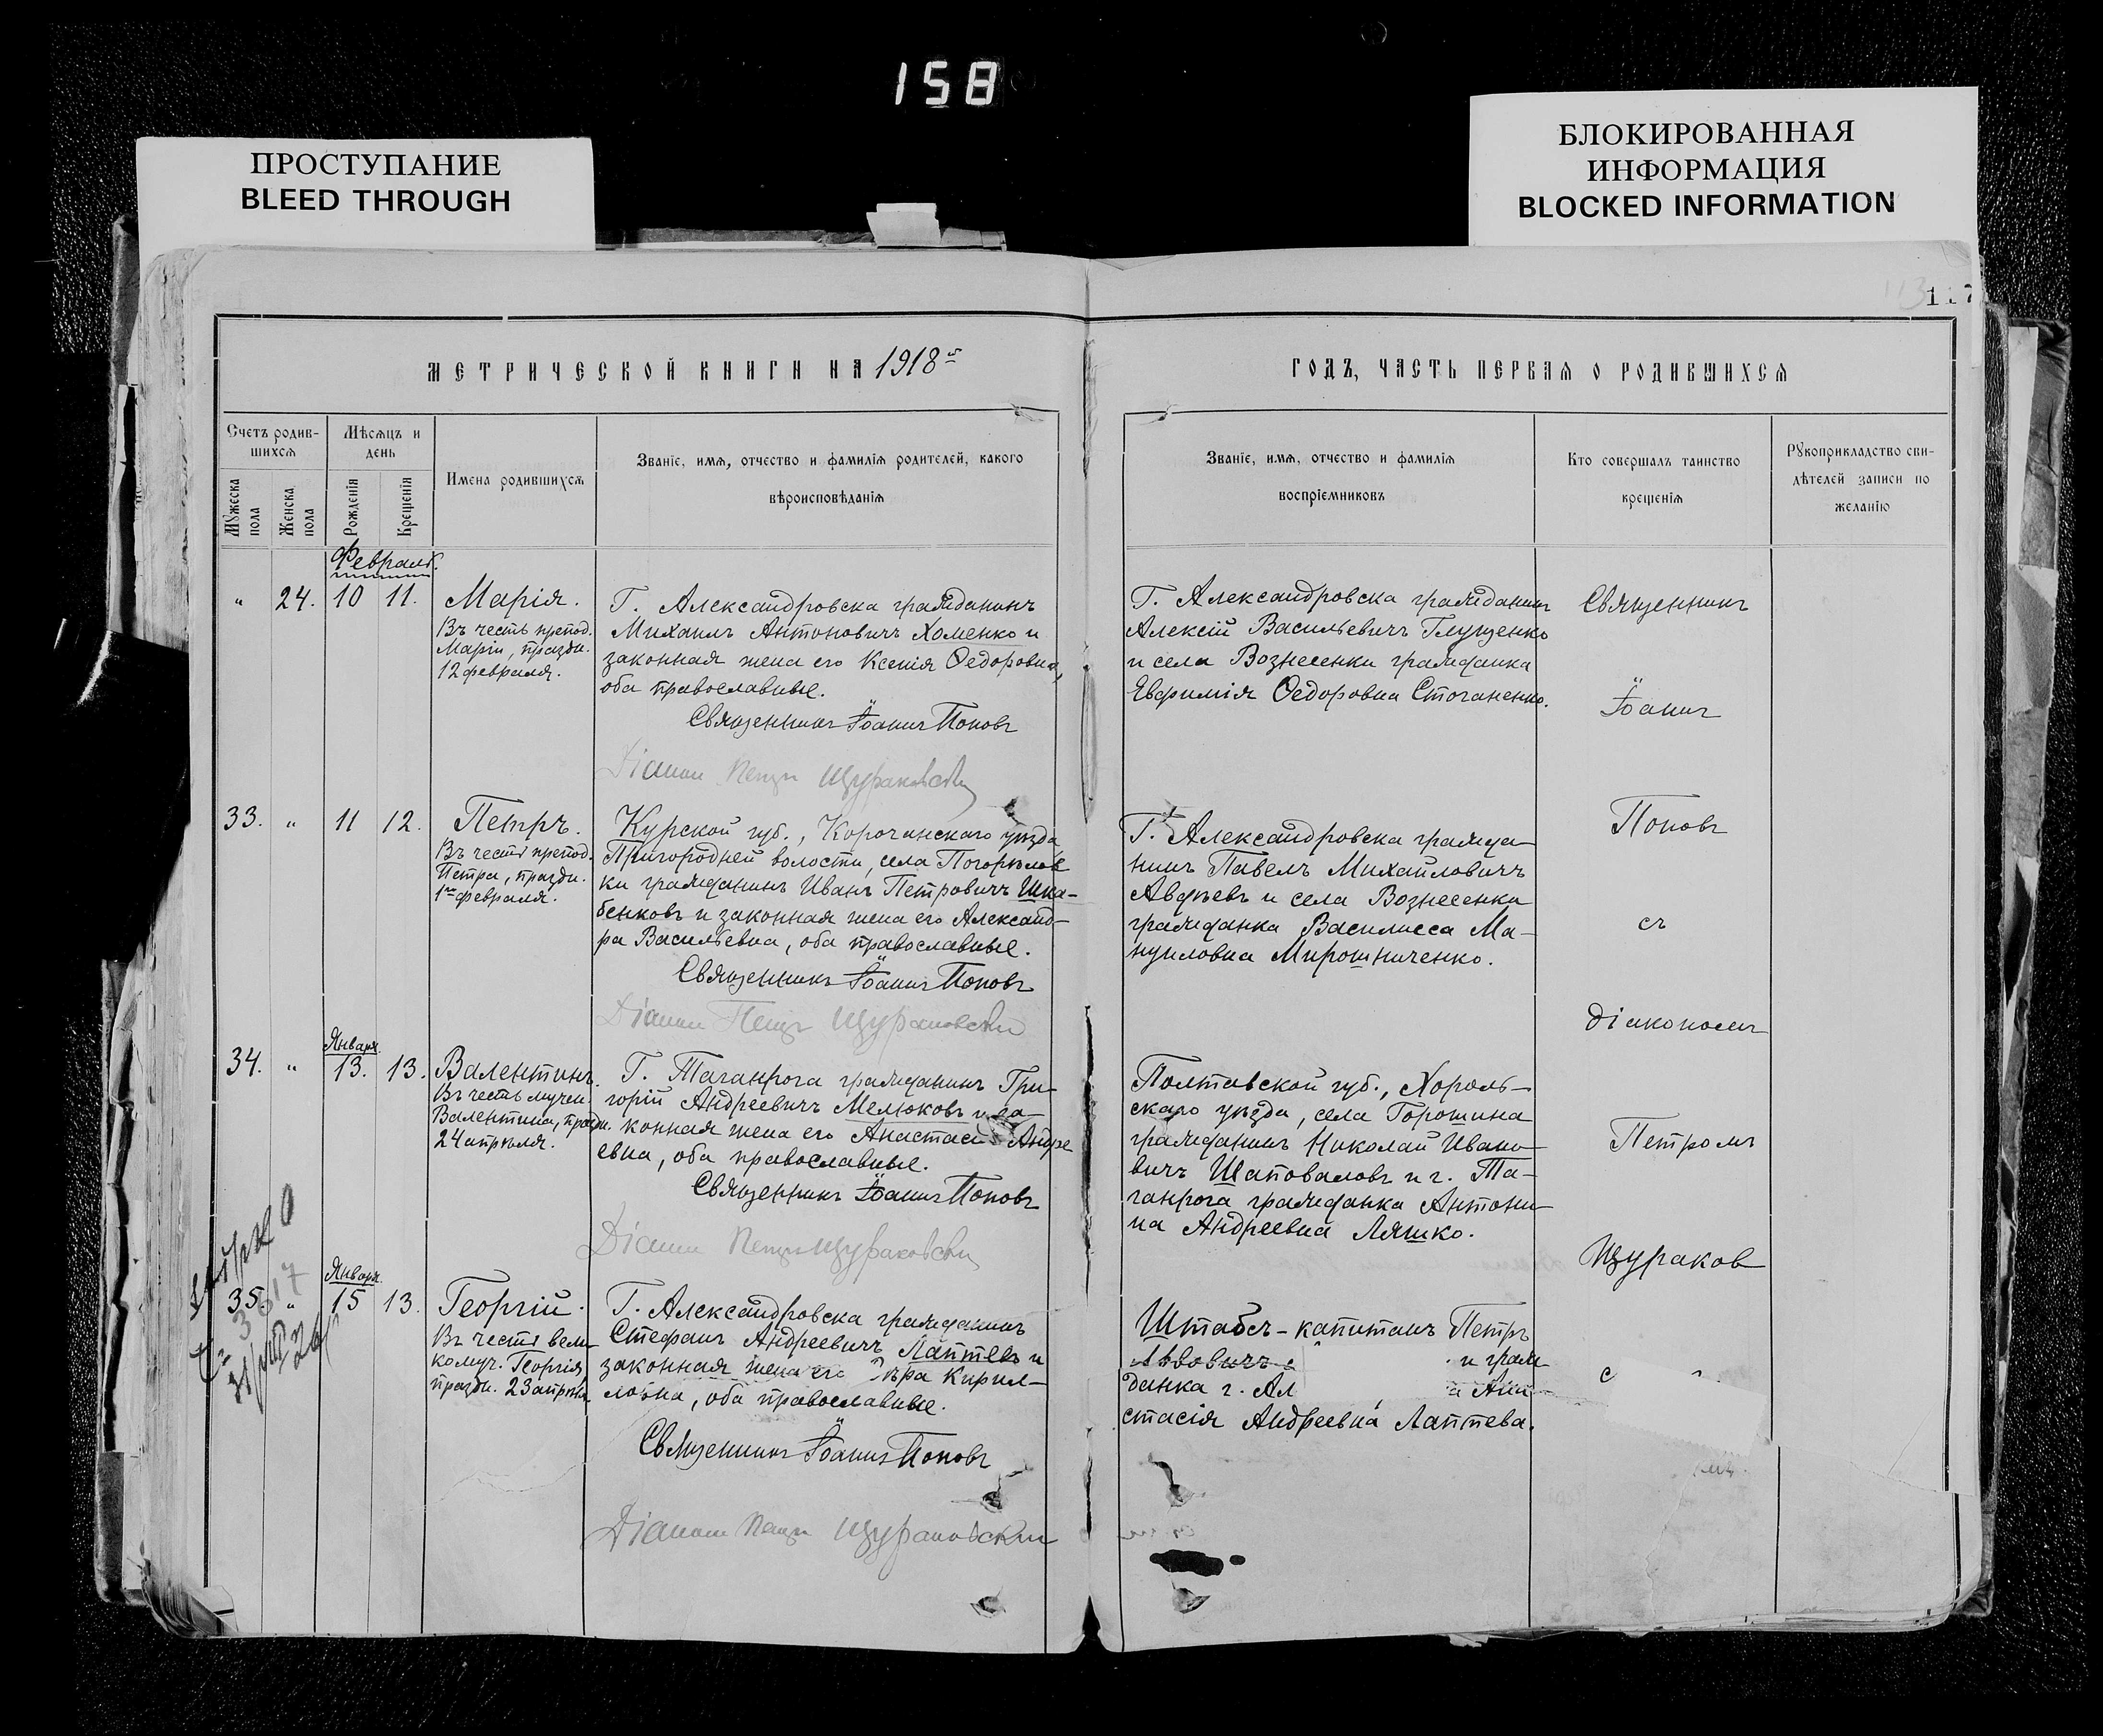 158
ПРОСТУПАНИЕ
BLEED THROUGH
БЛОКИРОВАННАЯ
ИНФОРМАЦИЯ
BLOCKED INFORMATION
МЕТРИЧЕСКОЙ КНИГИ НА 1918й
Счетъ родив-
шихся
Мѣсяцъ и
день
Мужеска пола
Женска пола
Рожденія
Крещенія
Имена родившихся
Званіе, имя, отчество и фамилія родителей, какого
вѣроисповѣданія
Февраль.
" 24. 10 11.
Марія.
Въ честь препод.
Маріи, праздн.
12 февраля.
Г. Александровска гражданинъ
Михаилъ Антоновичъ Хоменко и
законная жена его Ксенія Ѳедоровна,
оба православные.
Священникъ Іоаннъ Поповъ
Діаконъ Петръ Щураковскій
33. " 11 12.
Петръ.
Въ честь препод.
Петра, праздн.
1го февраля.
Курской губ., Корочанскаго уѣзда,
Пригородней волости, села Погорѣлов
ки гражданинъ Иванъ Петровичъ Шка-
бенковъ и законная жена его Александ-
ра Васильевна, оба православные.
Священникъ Іоаннъ Поповъ
Діаконъ Петръ Щураковскій
Января.
34. " 13. 13.
Валентинъ.
Въ честь мучен.
Валентина, праздн.
24 апрѣля.
Г. Таганрога гражданинъ Гри-
горій Андреевичъ Мелюковъ и за-
конная жена его Анастасія Андре
евна, оба православные.
Священникъ Іоаннъ Поповъ
Діаконъ Петръ Щураковскій
Января.
35. " 15 13.
Георгій.
Въ честь вели
комуч. Георгія,
праздн. 23 апрѣля.
Г. Александровска гражданинъ
Стефанъ Андреевичъ Лаптевъ и
законная жена его Вѣра Кирил-
ловна, оба православные.
Священникъ Іоаннъ Поповъ
Діаконъ Петръ Щураковскій
ГОДЪ, ЧАСТЬ ПЕРВАЯ О РОДИВШИХСЯ
Званіе, имя, отчество и фамилія
воспріемниковъ
Кто совершалъ таинство
крещенія
Рукоприкладство сви-
дѣтелей записи по
желанію
Г. Александровска гражданинъ
Алексій Васильевичъ Глущенко
и села Вознесенки гражданка
Евфимія Ѳедоровна Стоганенко.
Г. Александровска гражда-
нинъ Павелъ Михайловичъ
Авдѣевъ и села Вознесенки
гражданка Василисса Ма-
нуиловна Мирошниченко.
Полтавской губ., Хороль-
скаго уѣзда, села Горошина
гражданинъ Николай Ивано-
вичъ Шаповаловъ и г. Та-
ганрога гражданка Антони-
на Андреевна Ляшко.
Штабсъ-капитанъ Петръ
Львовичъ и граж
данка г. Ал а Ана-
стасія Андреевна Лаптева.
Священникъ
Іоаннъ
Поповъ
съ
діакономъ
Петромъ
Щураков
с